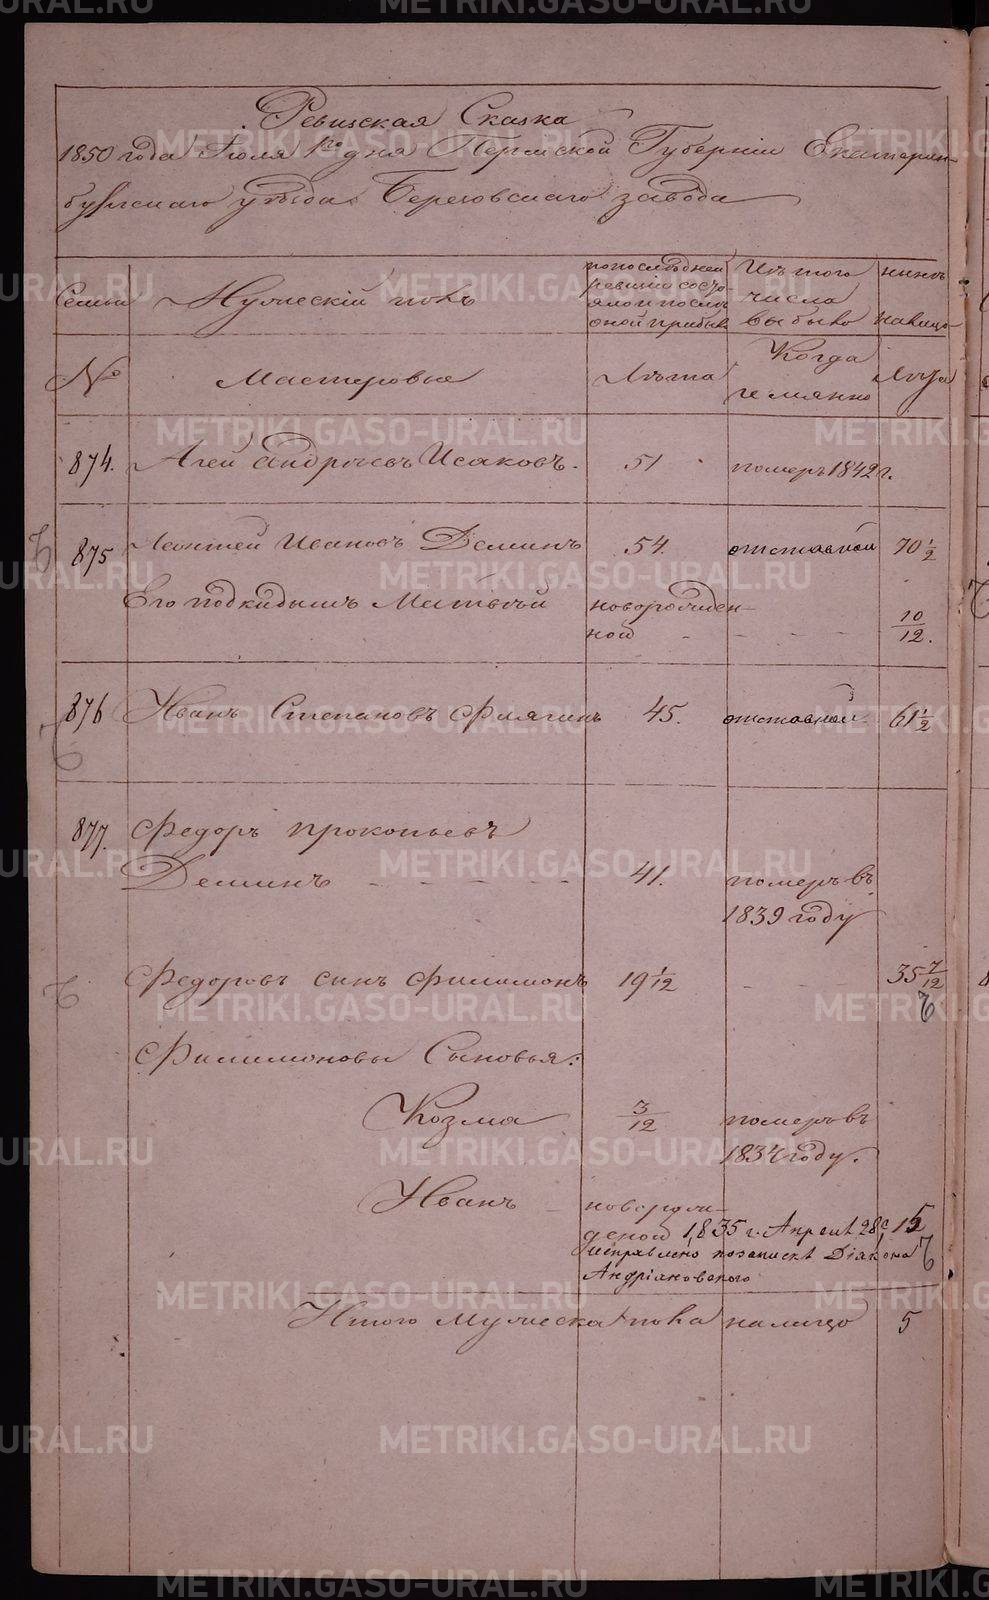 Ревизская Сказка
1850 года Іюля 1го дня Пермской Губерніи Екатерин-
бургскаго уѣзда Березовскаго завода
Семьи
Мужескій полъ
по послѣдней
ревизіи состо-
яло и послѣ
оной прибыв
Изъ того
числа
выбыло
нынѣ
налицо
№
Мастеровые
Лѣта
Когда
именно
Лѣта
874. Агей Андреевъ Исаковъ. 51 померъ 1842 г.
875 Леонтей Ивановъ Деминъ 54. отставной 70 1/2
Его подкидышъ Матвей новорожден-
ной - - - - 10/12.
876 Иванъ Степановъ Филягинъ 45. отставной 61 1/2
877. Федоръ Прокопьевъ
Деминъ - - - - - - 41. померъ въ
1839 году
Федоровъ сынъ Филимонъ 19 1/12 - - - 35 7/12
Филимоновы Сыновья:
Козма 3/12 померъ въ
1834 году.
Иванъ - новорож-
деной 1835 г. Апреля 28 15
исправлено по запискѣ Діякона
Андріяновского
Итого мужеска пола налицо 5
METRIKI.GASO-URAL.RU